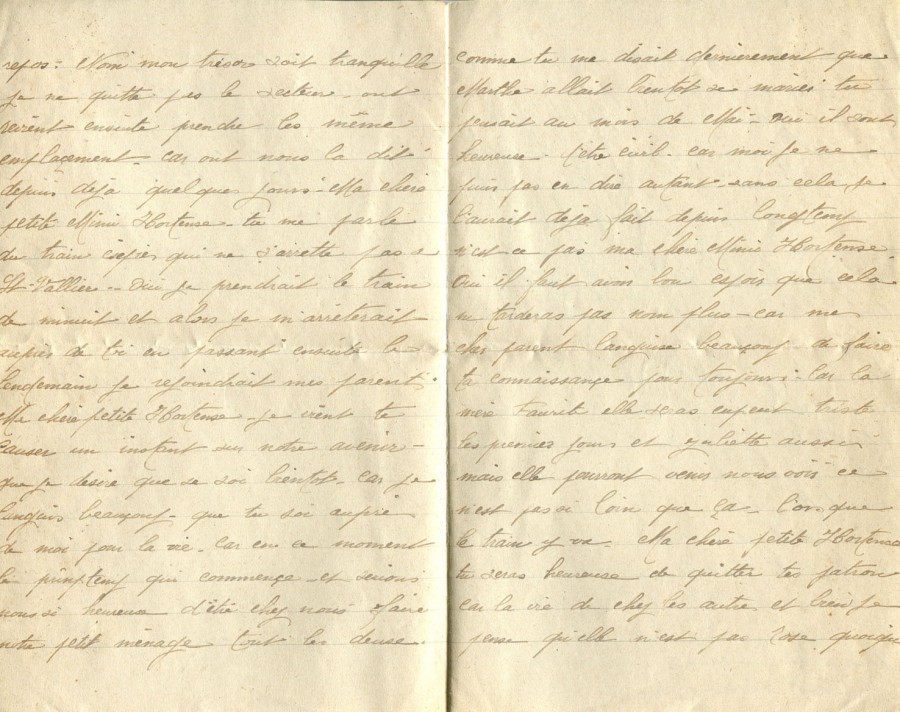 repos. Non mon trésor soit tranquille
je ne quitte pas le secteur. ont
revient ensuite prendre les même
emplacement. car ont nous la dit
depuis déja quelque jours. Ma chère
petite Mimi Hortense. tu me parle
du train éxprès qui ne s'arrette pas a
St-Vallier. Oui je prendrait le train
de minuit et alors je m'arrèterait
auprès de toi en passant ensuite le
lendemain je rejoindrait mes parent.
Ma chère petite Hortense je vient te
causer un instent sur notre avenir-
que je désire que se soi bientot. car je
languis beaucoup. que tu soi auprè
de moi pour la vie. car en ce moment
le printemp qui commença et serions
nous si heureux d'étre chez nous faire
notre petit ménage tout les deuse
comme tu me disait dernierement que
Marthe allait bientot se mariés tu
pensait au mois de Mai. oui il sont
heureuse. l'être civil. car moi je ne
puis pas en dire autant. sans cela je
l'aurait déja fait depuis longtemp
n'est ce pas ma chère Mimi Hortense
Oui il faut avoir bon espoir que celà
ne tarderas pas non plus. car mes
cher parent languise beaucoup de faire
ta connaissance pour toujours. Car la
mère Faurite elle seras enpeut triste
les premier jours et Juliette aussi
mais elle pourront venir nous voir ce
n'est pas si loin que ça. l'orsque
le train y va. Ma chère petite Hortense
tu seras heureuse de quitter tes patron
car la vie de chez les autre et bien je
pense qu'elle n'est pas rose quoique